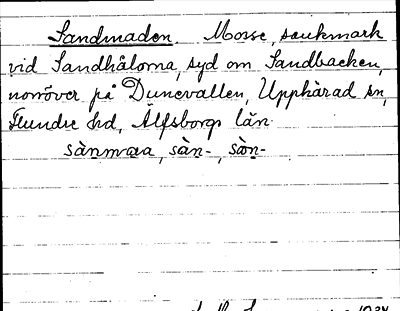 Sandmaden. Mosse, sankmark
vid Sandhålorna, syd om Sandbacken,
norröver på Dunevallen, Upphärad sn,
Flundre hd, Älfsborgs län.
sànmaa, sàn-, sòn-